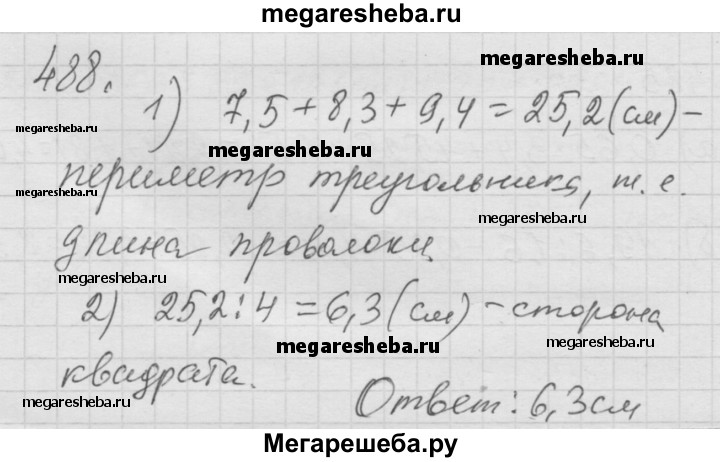 megaresheba.ru
488.
megaresheba.ru
1) 7,5 + 8,3 + 9,4 = 25,2 (см) –
megaresheba.ru
megaresheba.ru
периметр треугольника, т. е.
megaresheba.ru
megaresheba.ru
длина проволоки
megaresheba.ru
2) 25,2 : 4 = 6,3 (см) – сторона
megaresheba.ru
megaresheba.ru
квадрата.
megaresheba.ru
megaresheba.ru
Ответ: 6,3 см
Мегарешеба.ру